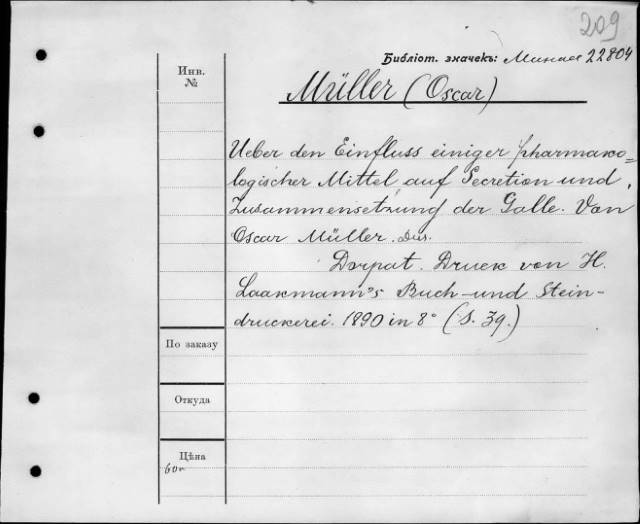 209
Библіот. значекъ: 22804
Инв.
№
Müller (Oscar)
Ueber den Einfluss einiger pharmako=
logischer Mittel auf Secretion und
Zusammensetzung der Galle. Von
Oscar Müller. Dis.
Dorpat. Druck von H.
Laakmann's Buch- und Stein-
druckerei. 1890 in 8° (S. 39.)
По заказу
Откуда
Цѣна
60к